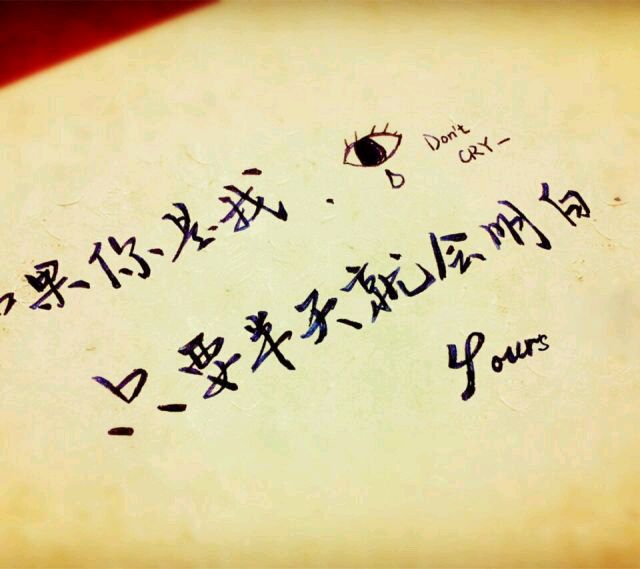 Don't
CRY
果你是我.
只要半天就会明白
Yours